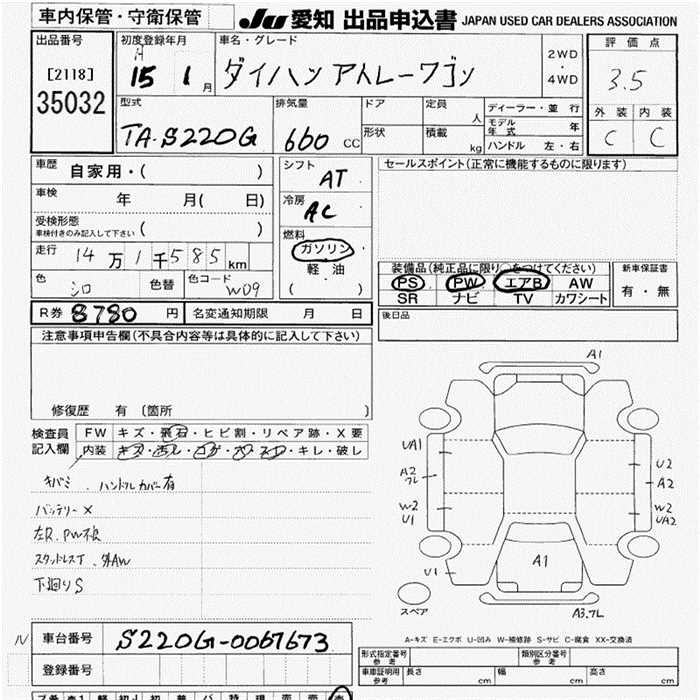 車内保管・守衛保管
JU 愛知 出品申込書 JAPAN USED CAR DEALERS ASSOCIATION
出品番号
[2118]
35032
初度登録年月
H 15 1 月
車名・グレード
ダイハツ アトレーワゴン
2WD
・
4WD
評価点
3.5
外装 内装
C C
型式
TA-S220G
排気量
660 CC
ドア
形状
定員 人
積載 kg
ディーラー・並行
モデル年式 年
ハンドル 左・右
車歴 自家用・( )
車検 年 月( 日)
受検形態
車検付きのみ記入して下さい ( )
走行 14万1千585km
色 シロ 色替 色コード W09
シフト
AT
冷房
AC
燃料
ガソリン・
軽油
( )
セールスポイント(正常に機能するものに限ります)
装備品(純正品に限り○をつけてください)
PS PW エアB AW
SR ナビ TV カワシート
新車保証書
有・無
R券 8780 円 名変通知期限 月 日
後日品
注意事項申告欄(不具合内容等は具体的に記入して下さい)
修復歴 有 [箇所 ]
検査員
記入欄
FW キズ・飛石・ヒビ割・リペア跡・X要
内装 キズ・汚レ・コゲ・穴・スレ・キレ・破レ
キバミ ハンドルカバー有
バッテリーX
左R.PW不良
スタッドレスT . 外AW
下廻りS
A1
UA1
A2
ワレ
W2
U1
U1
U2
A2
W2
UA2
A1
A3.ワレ
スペア
A-キズ E-エクボ U-凹み W-補修跡 S-サビ C-腐食 XX-交換済
車台番号 S220G-0067673
登録番号
形式指定番号
参考
類別区分番号
参考
車庫証明用
参考
長さ cm 幅 cm 高さ cm